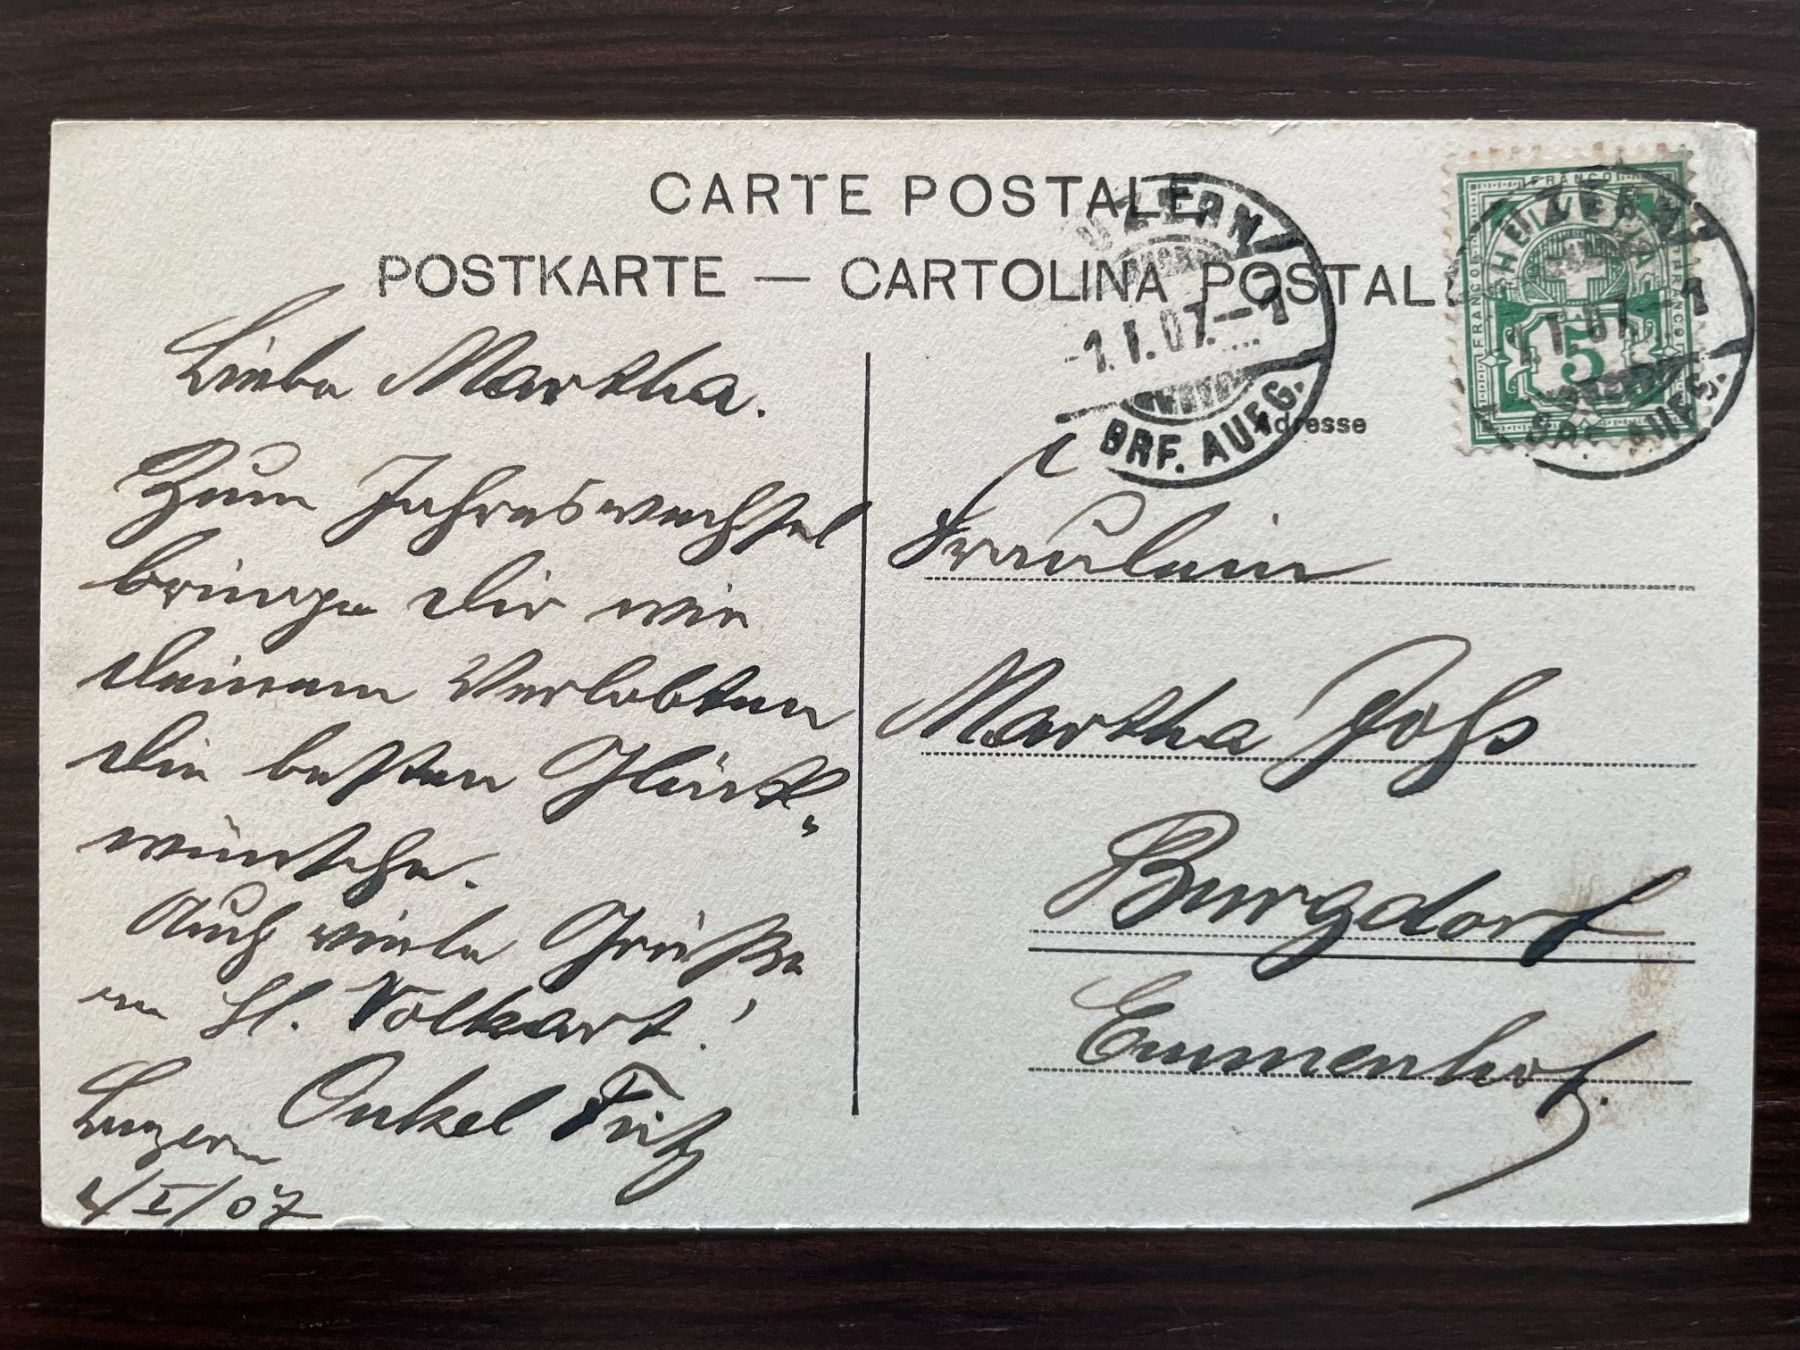 CARTE POSTALE
POSTKARTE — CARTOLINA POSTALE
LUZERN
-1.I.07.-1
BRF. AUFG.
LUZERN
1.I.07.-1
BRF. AUFG.
FRANCO
FRANCO
FRANCO
HELVETIA
5
Adresse
Liebe Martha.
Zum Jahreswechsel
bringe Dir wie
Deinem Verlobten
die besten Glück-
wünsche.
Auch viele Grüße
an Fl. Volkart!
Onkel Fritz
Luzern
1/I/07
Fräulein
Martha Joß
Burgdorf
Emmenhof.